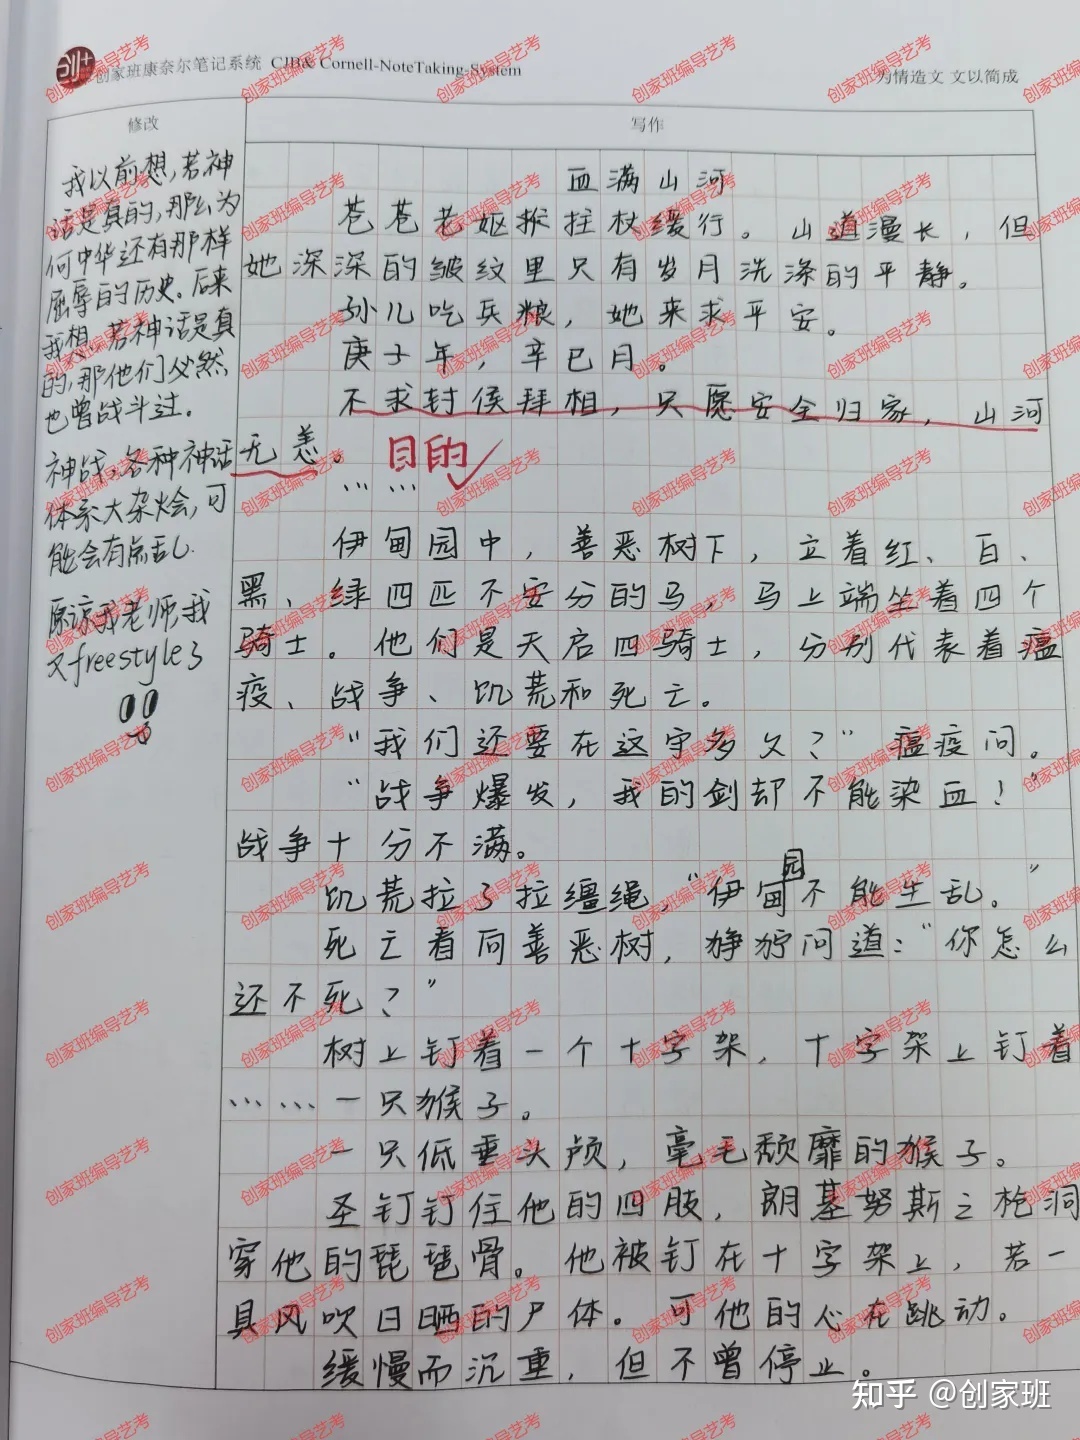 创+
创家班康奈尔笔记系统 CJB& Cornell-NoteTaking-System
为情造文 文以简成
修改
写作
我以前想,若神
话是真的,那么为
何中华还有那样
屈辱的历史。后来
我想,若神话是真
的,那他们必然
也曾战斗过。
神战,各种神话
体系大杂烩,可
能会有点乱.
原谅我老师,我
又freestyle了
血满山河
苍苍老妪拄杖缓行。山道漫长,但
她深深的皱纹里只有岁月洗涤的平静。
孙儿吃兵粮,她来求平安。
庚子年,辛巳月。
不求封侯拜相,只愿安全归家,山河
无恙。
目的
……
伊甸园中,善恶树下,立着红、白、
黑、绿四匹不安分的马,马上端坐着四个
骑士。他们是天启四骑士,分别代表着瘟
疫、战争、饥荒和死亡。
“我们还要在这守多久?”瘟疫问。
“战争爆发,我的剑却不能染血!”
战争十分不满。
饥荒拉了拉缰绳,“伊甸园不能生乱。”
死亡看向善恶树,狰狞问道:“你怎么
还不死?”
树上钉着一个十字架,十字架上钉着
……一只猴子。
一只低垂头颅,毫毛颓靡的猴子。
圣钉钉住他的四肢,朗基努斯之枪洞
穿他的琵琶骨。他被钉在十字架上,若一
具风吹日晒的尸体。可他的心在跳动。
缓慢而沉重,但不曾停止。
知乎 @创家班
创家班编导艺考